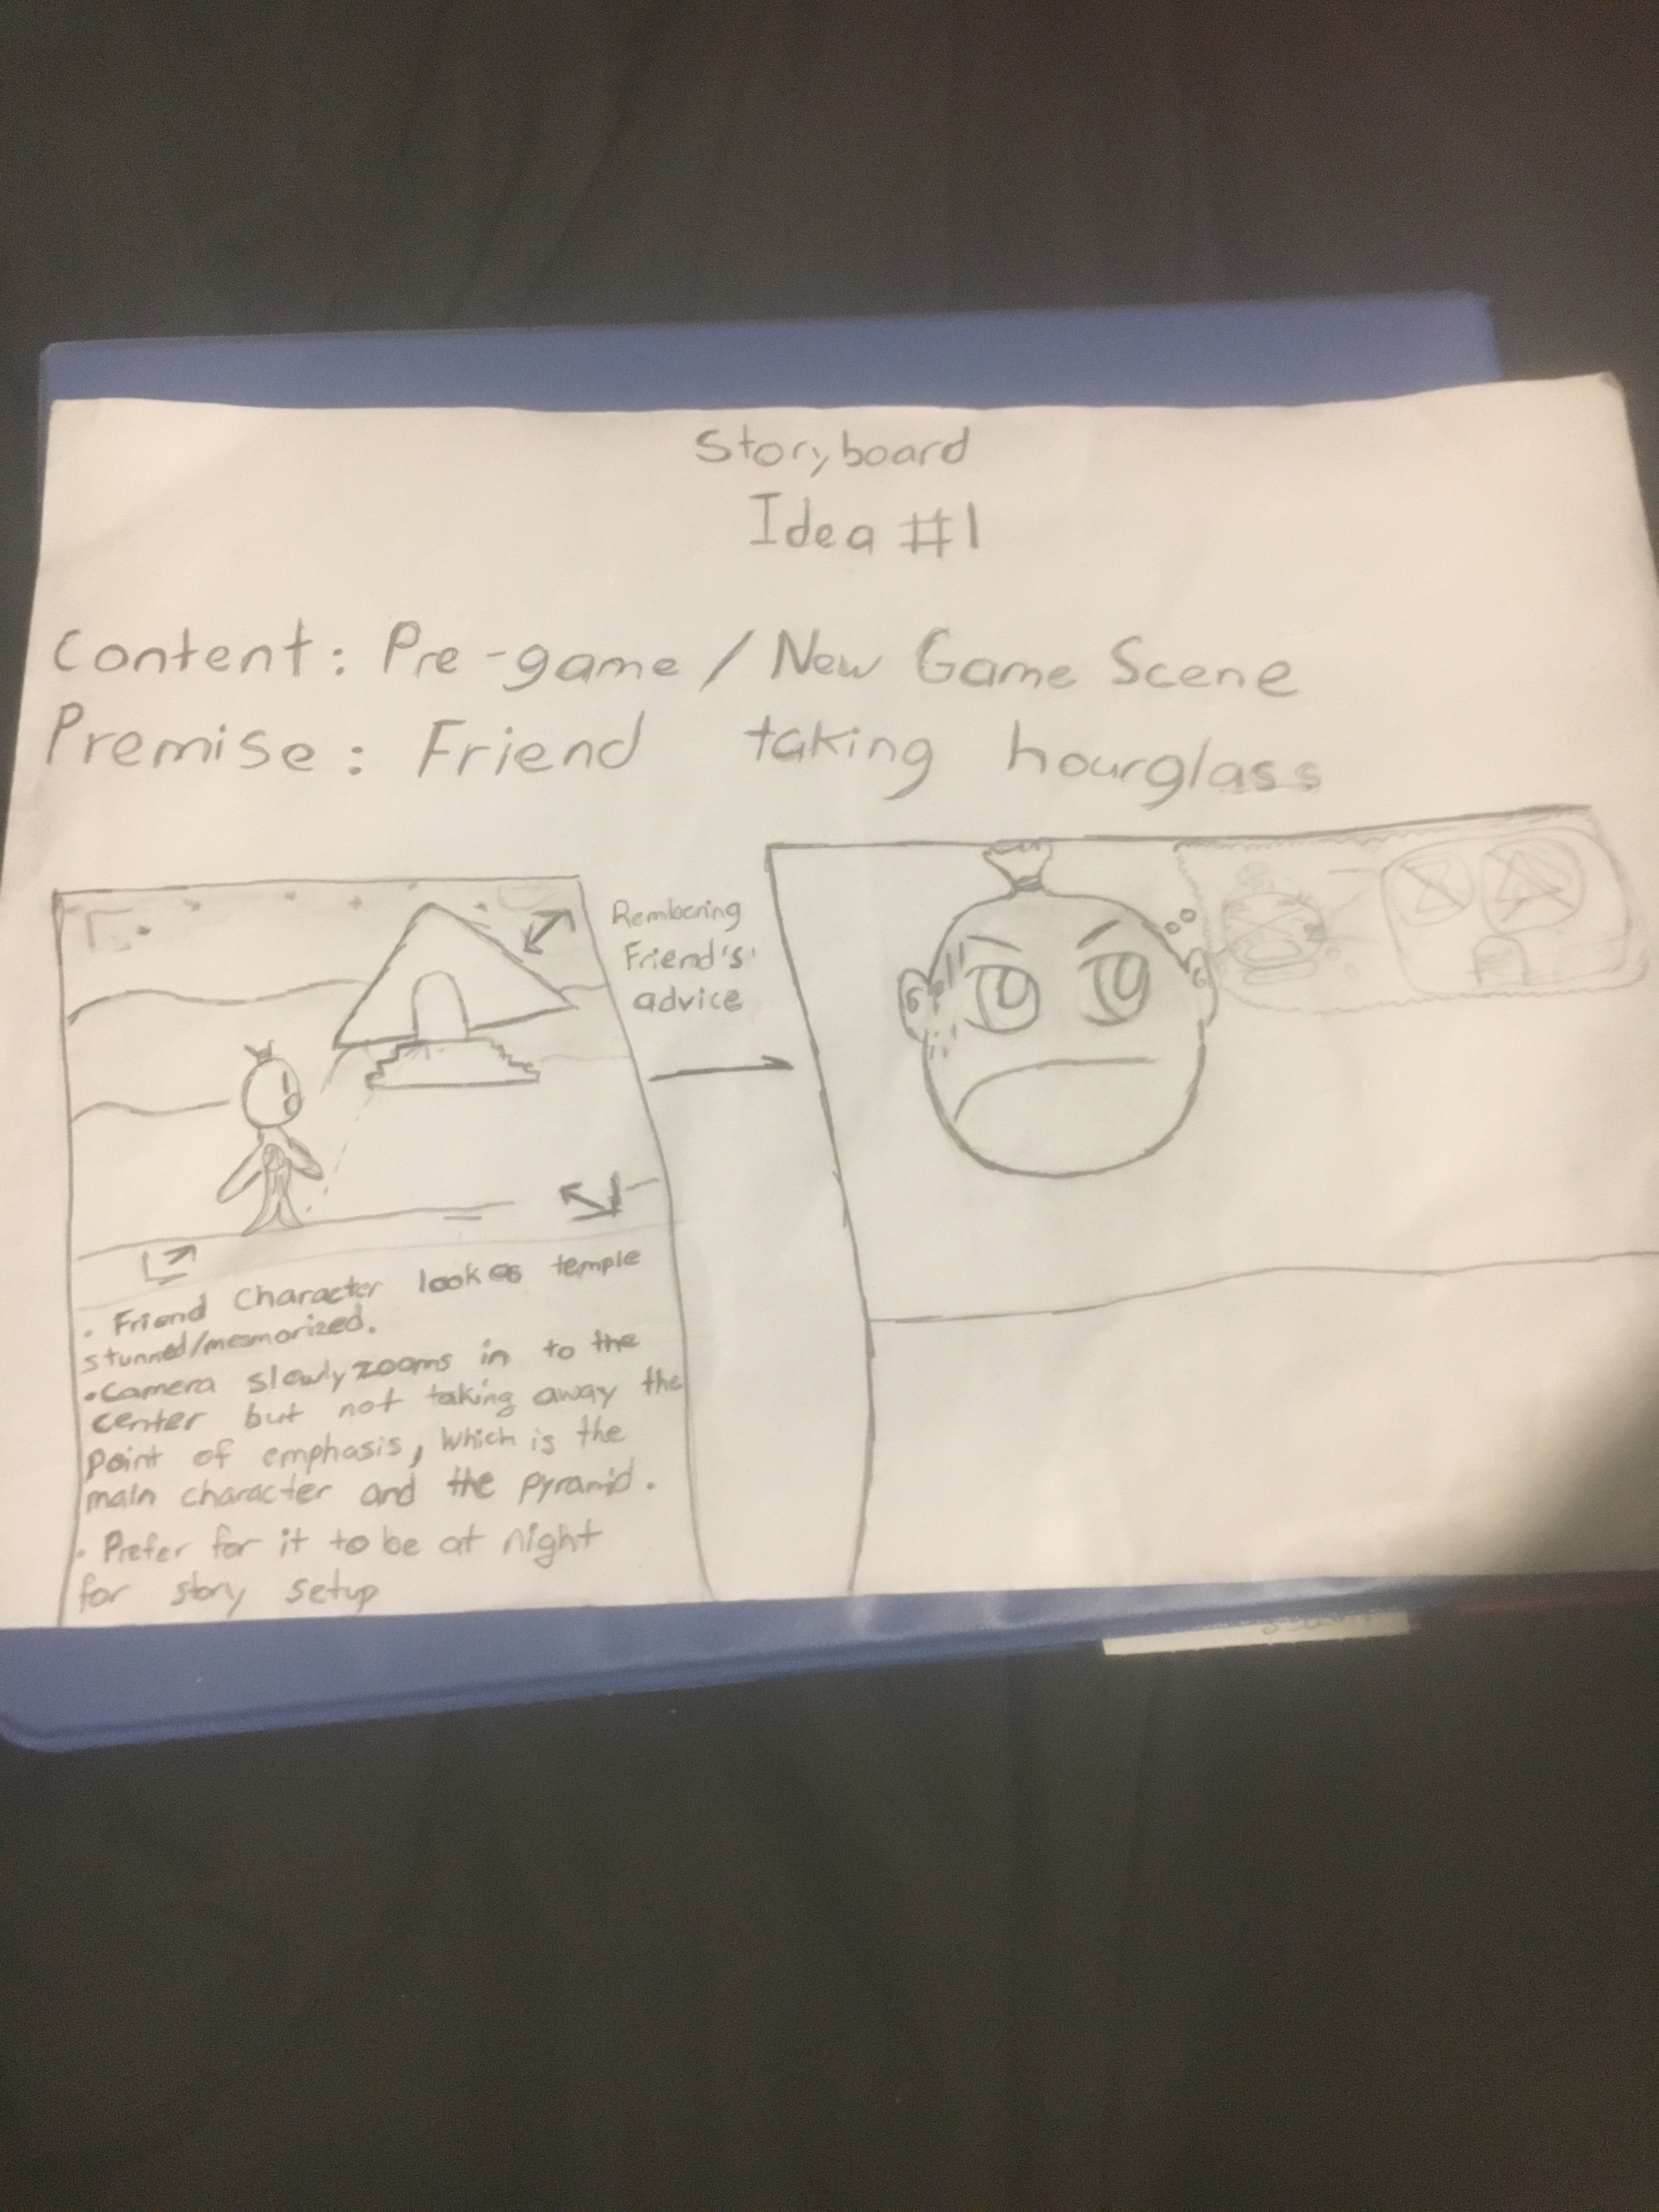 Storyboard
Idea #1
Content: Pre-game / New Game Scene
Premise: Friend taking hourglass
Rembering
Friend's'
advice
• Friend Character lookes temple
stunned/mesmorized.
• Camera slowly zooms in to the
center but not taking away the
point of emphasis, which is the
main character and the pyramid.
• Prefer for it to be at night
for story setup